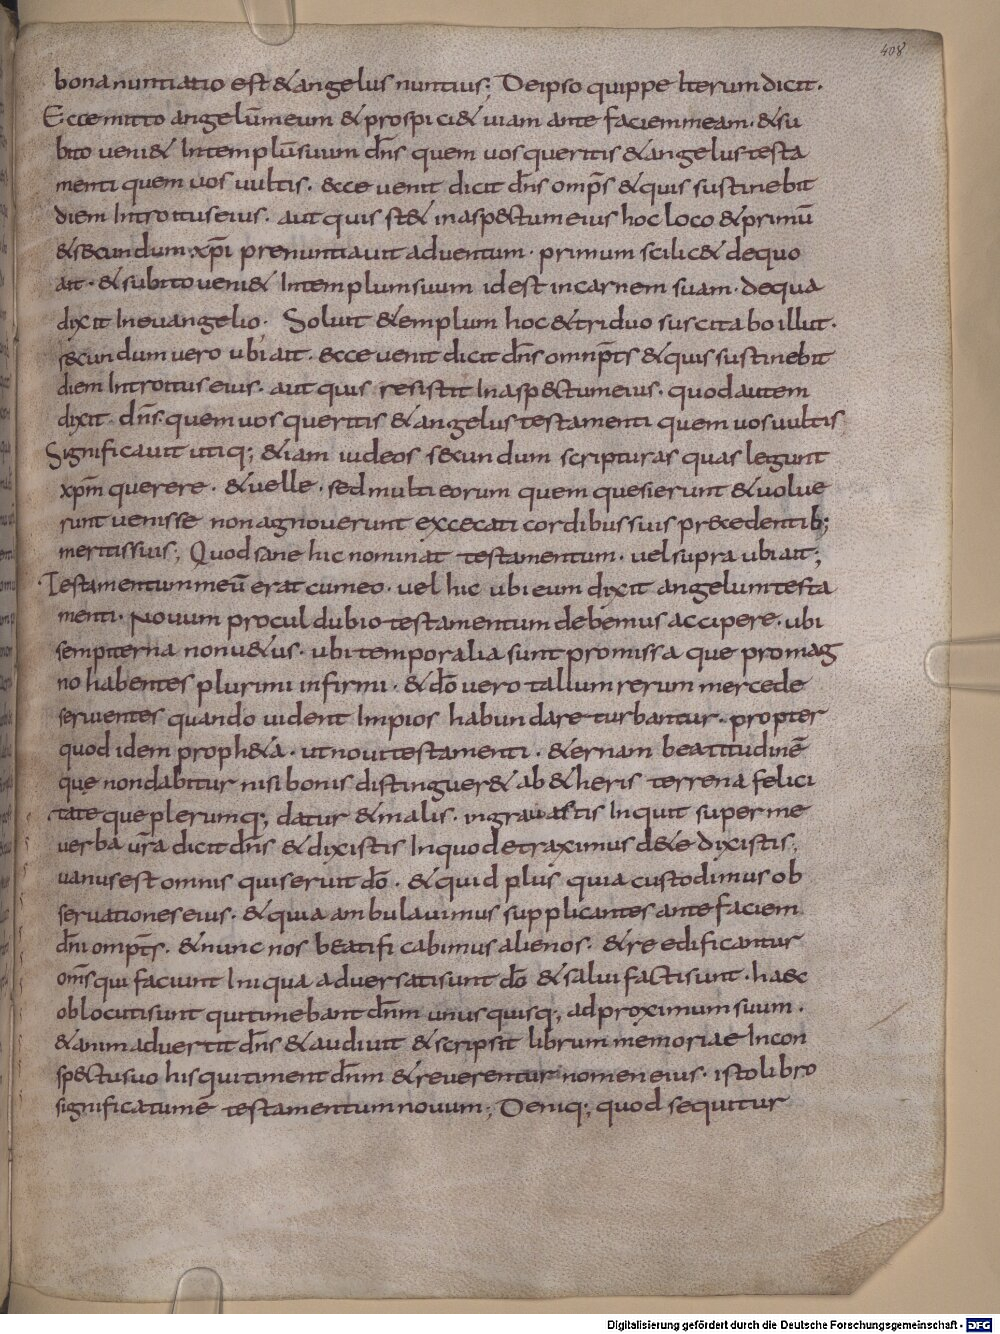 408
bona nuntiatio est & angelus nuntius; De ipso quippe Iterum dicit.
Ecce mitto angelū meum & prospici& uiam ante faciem meam. & su
bito ueni& In templū suum dn̄s quem uos queritis & angelus testa
menti quem uos uultis. ecce uenit dicit dn̄s omp̄s & quis sustinebit
diem Introitus eius. aut quis st& in aspectum eius hoc loco & primū
& secundum xp̄i prenuntiauit aduentum. primum scilic& de quo
ait. & subito ueni& In templum suum id est in carnem suam. de qua
dixit In euangelio. Soluit & emplum hoc & triduo suscitabo illut.
secundum uero ubi ait. ecce uenit dicit dn̄s omnp̄ts & quis sustinebit
diem Introitus eius. aut quis resistit In aspectum eius. quod autem
dixit. dn̄s quem uos queritis & angelus testamenti quem uos uultis
Significauit utiq; & iam iudeos secundum scripturas quas legunt
xp̄m querere. & uelle. sed multi eorum quem quesierunt & uolue
runt uenisse non agnouerunt excecati cordibus suis precedentib;
meritis suis; Quod sane hic nominat testamentum. uel supra ubi ait;
Testamentum meū erat cum eo. uel hic ubi eum dixit angelum testa
menti. Nouum procul dubio testamentum debemus accipere. ubi
sempiterna non u&us. ubi temporalia sunt promissa que pro mag
no habentes plurimi infirmi. & dō uero tallum rerum mercede
seruientes quando uident Impios habundare turbantur. propter
quod idem proph&a. ut noui testamenti. &ernam beatitudinē
que non dabitur nisi bonis distinguer& ab &heris terrena felici
tate que plerumq; datur & malis. ingrauastis Inquit super me
uerba ūra dicit dn̄s & dixistis In quo detraximus de te dixistis;
uanus est omnis qui seruit dō. & quid plus quia custodimus ob
seruationes eius. & quia ambulauimus supplicantes ante faciem
dn̄i omp̄ts. & nunc nos beatificabimus alienos. & reedificantur
om̄s qui faciunt Iniqua aduersati sunt dō & salui facti sunt. haec
oblocuti sunt qui timebant dn̄m unus quisq; ad proximum suum.
& animaduertit dn̄s & audiuit & scripsit librum memoriae In con
spectu suo his qui timent dn̄m & reuerentur nomen eius. isto libro
significatum ē testamentum nouum; Deniq; quod sequitur
Digitalisierung gefördert durch die Deutsche Forschungsgemeinschaft - DFG